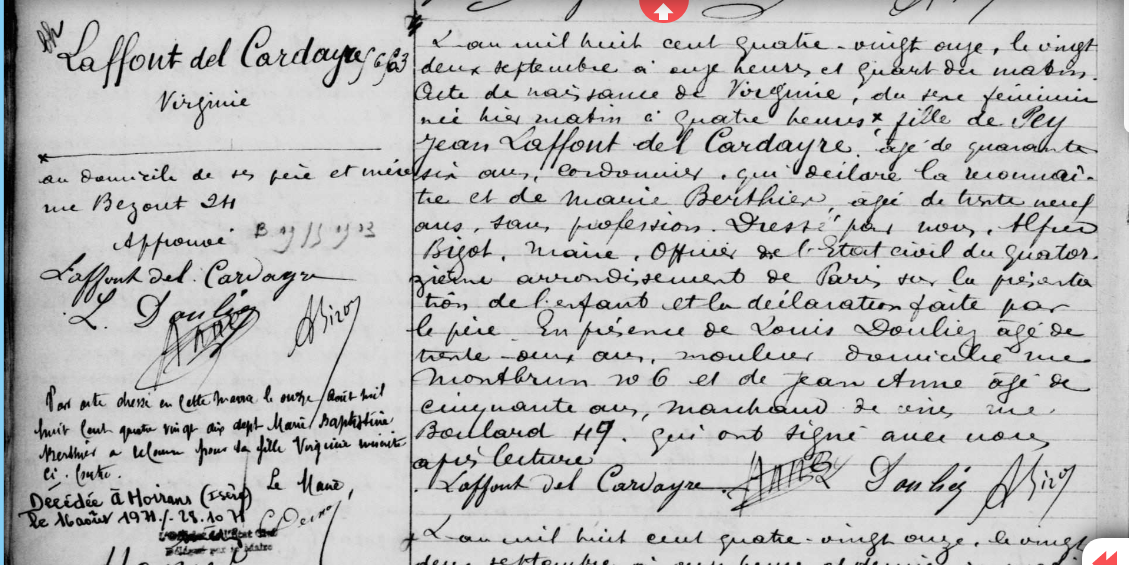 Laffont del Cardayre
Virginie
au domicile de ses père et mère
rue Bezout 24
Approuvé
Laffont del Cardayre
L. Douliez
ABizot
Par acte dressé en cette mairie le onze août mil
huit cent quatre vingt dix sept Marie Baptistine
Berthier a reconnu pour sa fille Virginie inscrite
ci-contre.
Le Maire,
Décédée à Moirans (Isère)
L'an mil huit cent quatre-vingt onze, le vingt
deux septembre à onze heures et quart du matin.
Acte de naissance de Virginie, du sexe féminin
née hier matin à quatre heures x fille de Pey
Jean Laffont del Cardayre, âgé de quarante
six ans, cordonnier, qui déclare la reconnaî-
tre et de Marie Berthier, âgée de trente neuf
ans, sans profession. Dressé par nous, Alfred
Bizot, Maire, Officier de l'Etat civil du quator-
zième arrondissement de Paris sur la présenta
tion de l'enfant et la déclaration faite par
le père. En présence de Louis Douliez âgé de
trente-deux ans, mouleur domicilié rue
Montbrun no 6 et de Jean Anne âgé de
cinquante ans, marchand de vins rue
Boulard 49. qui ont signé avec nous
après lecture
Laffont del Cardayre. Douliez ABizot
L'an mil huit cent quatre-vingt onze, le vingt
deux septembre à